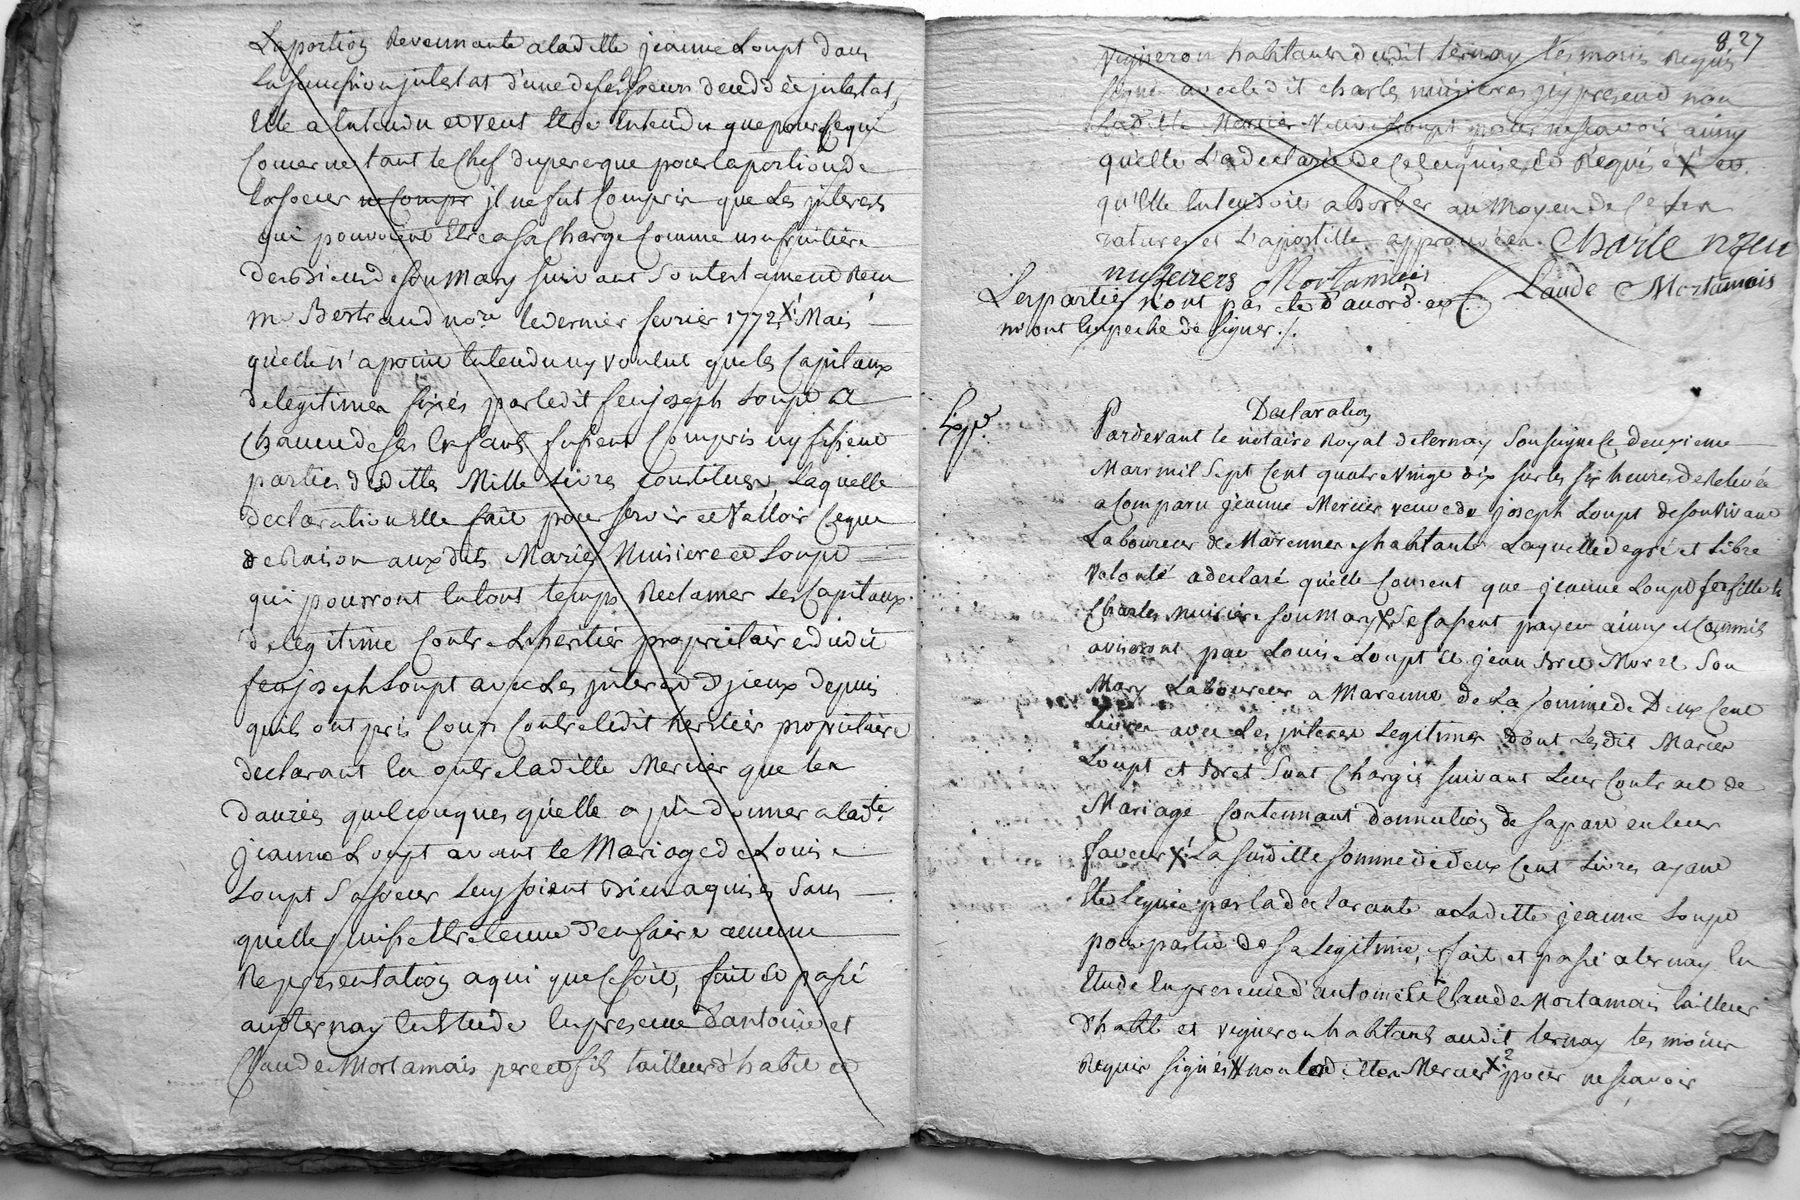 La portion Revennante a ladette jeanne Loupt dans
la succession jntestat d'une de ses soeurs decedée jntestat,
Elle a Entendu et veut Etre Entendu que pour Ce qui
Concerne tant le Chef du pere que pour la portion de
la soeur ne Compr jl ne fut Compris que Les jnterets
qui pouvoient Etre a sa Charge Comme usufruitiere
des Biens de son Mary suivant son testament Recu
me Bertrand nore le dernier fevrier 1772 X Mais
quelle n'a point Entendu ny voulut que les Capitaux
de legitimes fixés par ledit feu joseph Loupt a
Chacun de ses Enfants fusient Compris ny fisient
parties desdittes Mille Livres Constituer, Laquelle
declaration Elle fait pour servir et Valloir Ce que
de Raison auxdits Mariés Nuisiere et Loupt
qui pourront En tout temps Reclamer Les Capitaux
de legitime Contre L'heritier propriétaire dudit
feu joseph Loupt avec Les jnterets d'jceux depuis
quils ont pris Cours Contre ledit heritier propriétaire
declarant En outre ladille Mercier que les
danrées quelconques quelle a pu donner a ladte
jeanne Loupt avant le Mariage de Louise
Loupt sa soeur Luy soient Bien aquises sans
quelle puisse Etre tenue d'en faire aucune
Representation a qui que Ce soit, fait et passé
audternay En Etude En presence d'antoine et
Claude Mortamais pere et fils tailleur d'habit et
8,27
vigneron habitants dudit ternay témoins Requis
signé avec ledit charles nuisieres jcy present non
Ladille Mercier Veuve Loupt pour ne scavoir ainsy
quelle L'a declaré de Ce Enquise et Requise X et
qu'Elle Entendoit absorber au Moyen de Ce
ratures et L'apostille approuvéea. Charle nzeu
nuzeirers Mortamais Laude Mortamais
Les parties n'ont pas été d'accord et
m'ont Empeche de signer ./.
Declaration
Expé.
Pardevant le notaire Royal de ternay soussigne Ce deuxieme
Mars mil sept Cent quatre Vingt dix sur les six heures de Relevée
a Comparu jeanne Mercier veuve de joseph Loupt de son Vivant
Laboureur de Marennes y habitante Laquelle de gré et Libre
Volonté a declaré quelle Consent que jeanne Loupt sa fille et
Charles nuisiere son Mary X se fasient payer ainsy et Comme ils
aviseront par Louise Loupt et jean Bret Morel son
Mary Laboureur a Marennes de La somme de Deux Cent
Livres avec Les jnterets Legitimes dont Lesdit Mariés
Loupt et Bret sont Chargés suivant Leur Contract de
Mariage Contennant donnation de sa part en leur
faveur X La susditte somme de deux Cent Livres ayant
Ete Leguée par la declarante a Laditte jeanne Loupt
pour partie de sa legitime, fait et passé a ternay En
Etude En presence d'antoine et Claude Mortamais tailleur
d'habit et vigneron habitants audit ternay temoins
Requis signés X non laditte Mercier X2 pour ne scavoir